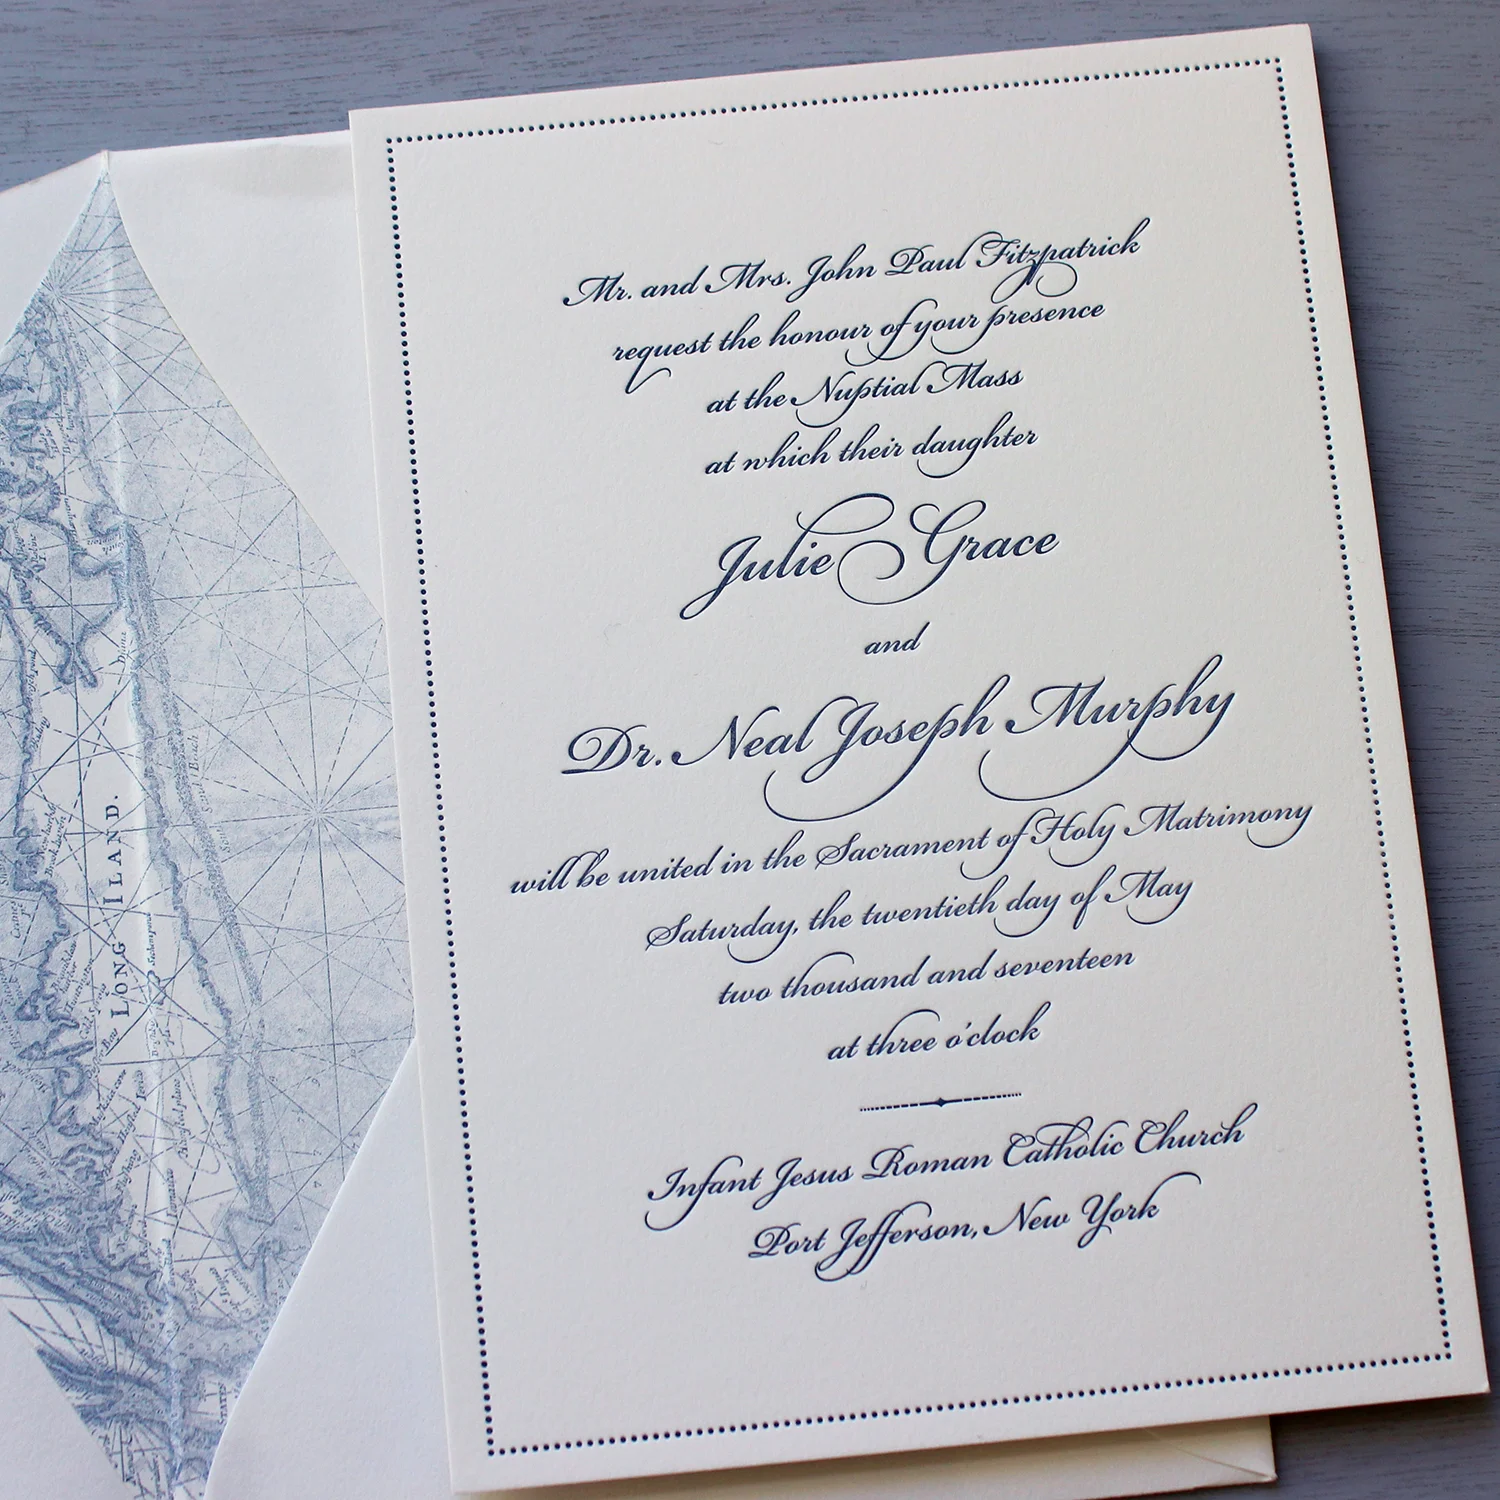 Mr. and Mrs. John Paul Fitzpatrick
request the honour of your presence
at the Nuptial Mass
at which their daughter
Julie Grace
and
Dr. Neal Joseph Murphy
will be united in the Sacrament of Holy Matrimony
Saturday, the twentieth day of May
two thousand and seventeen
at three o'clock
Infant Jesus Roman Catholic Church
Port Jefferson, New York
LONG ILAND.